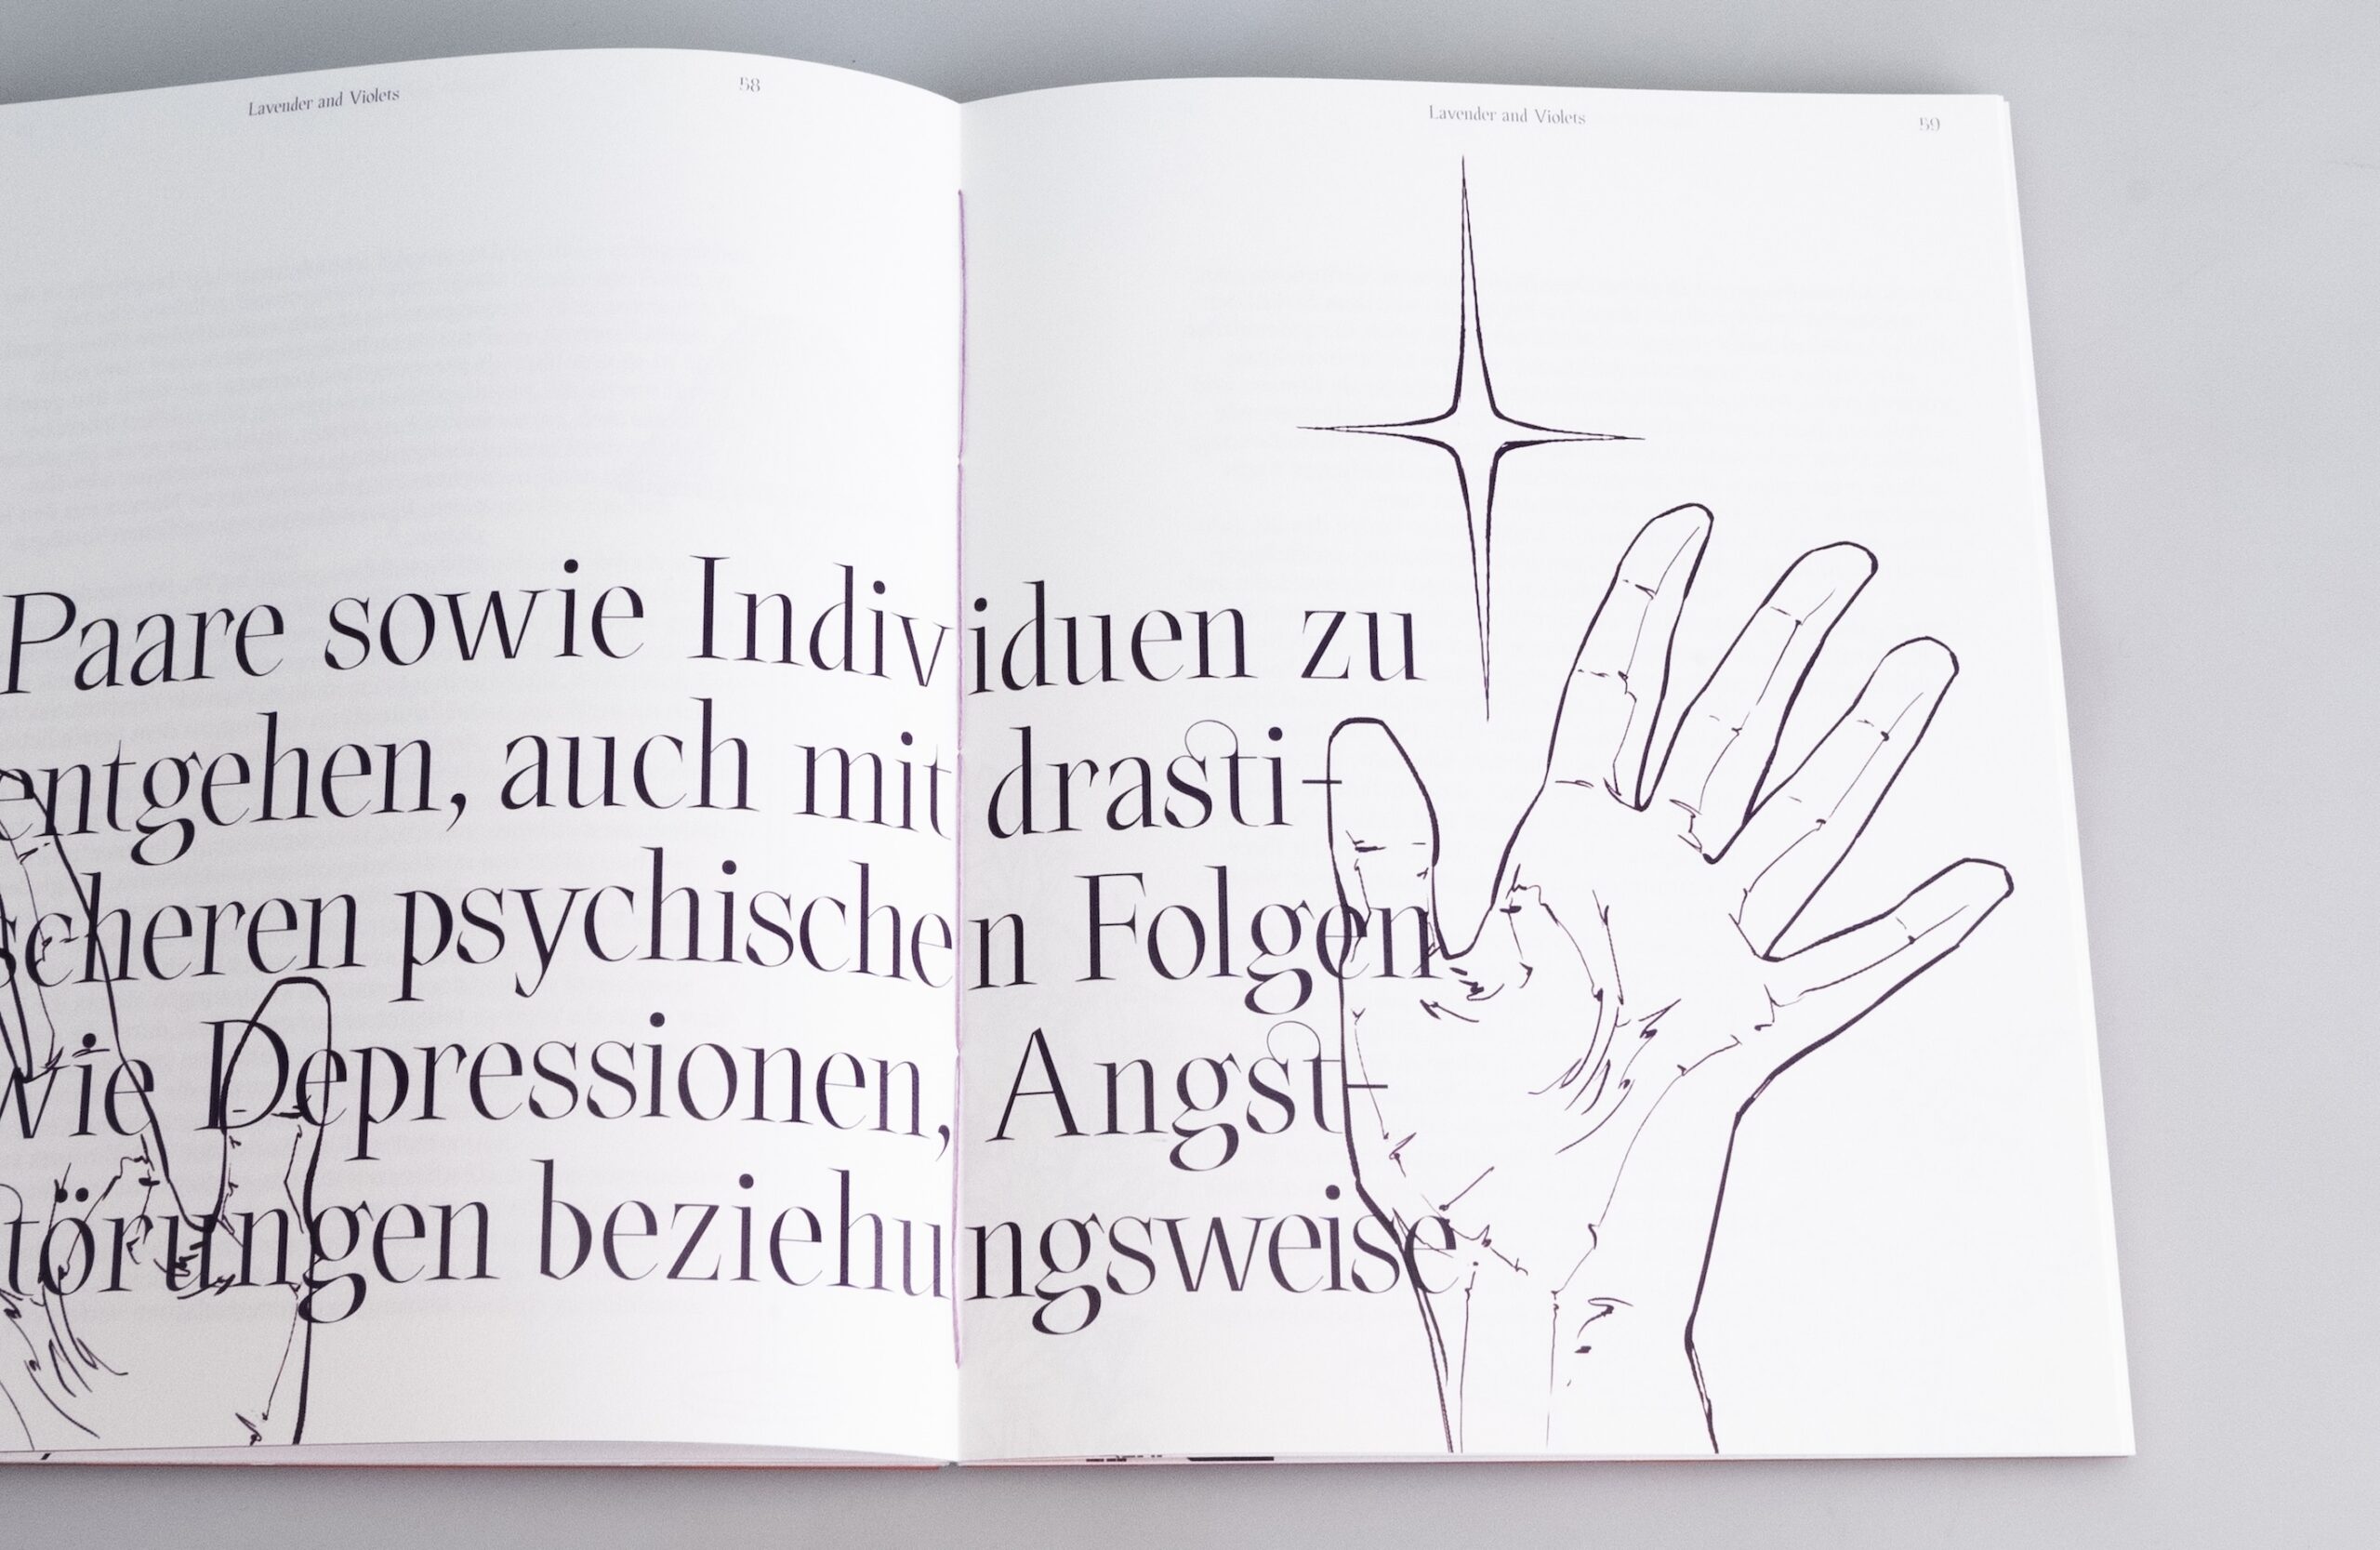 Lavender and Violets 58
Lavender and Violets 59
Paare sowie Individuen zu
entgehen, auch mit drasti-
scheren psychischen Folgen
wie Depressionen, Angst-
törungen beziehungsweise